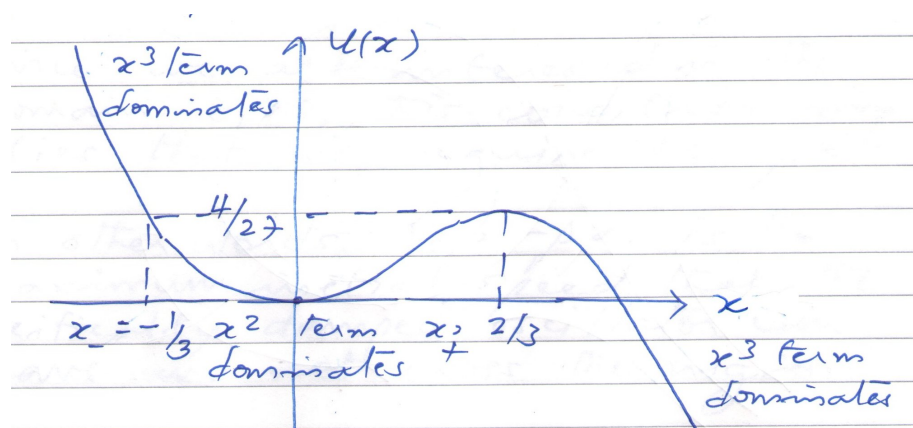 U(x)
x³ term
dominates
4/27
x_ = -1/3
x² term
dominates
x₊ = 2/3
x
x³ term
dominates